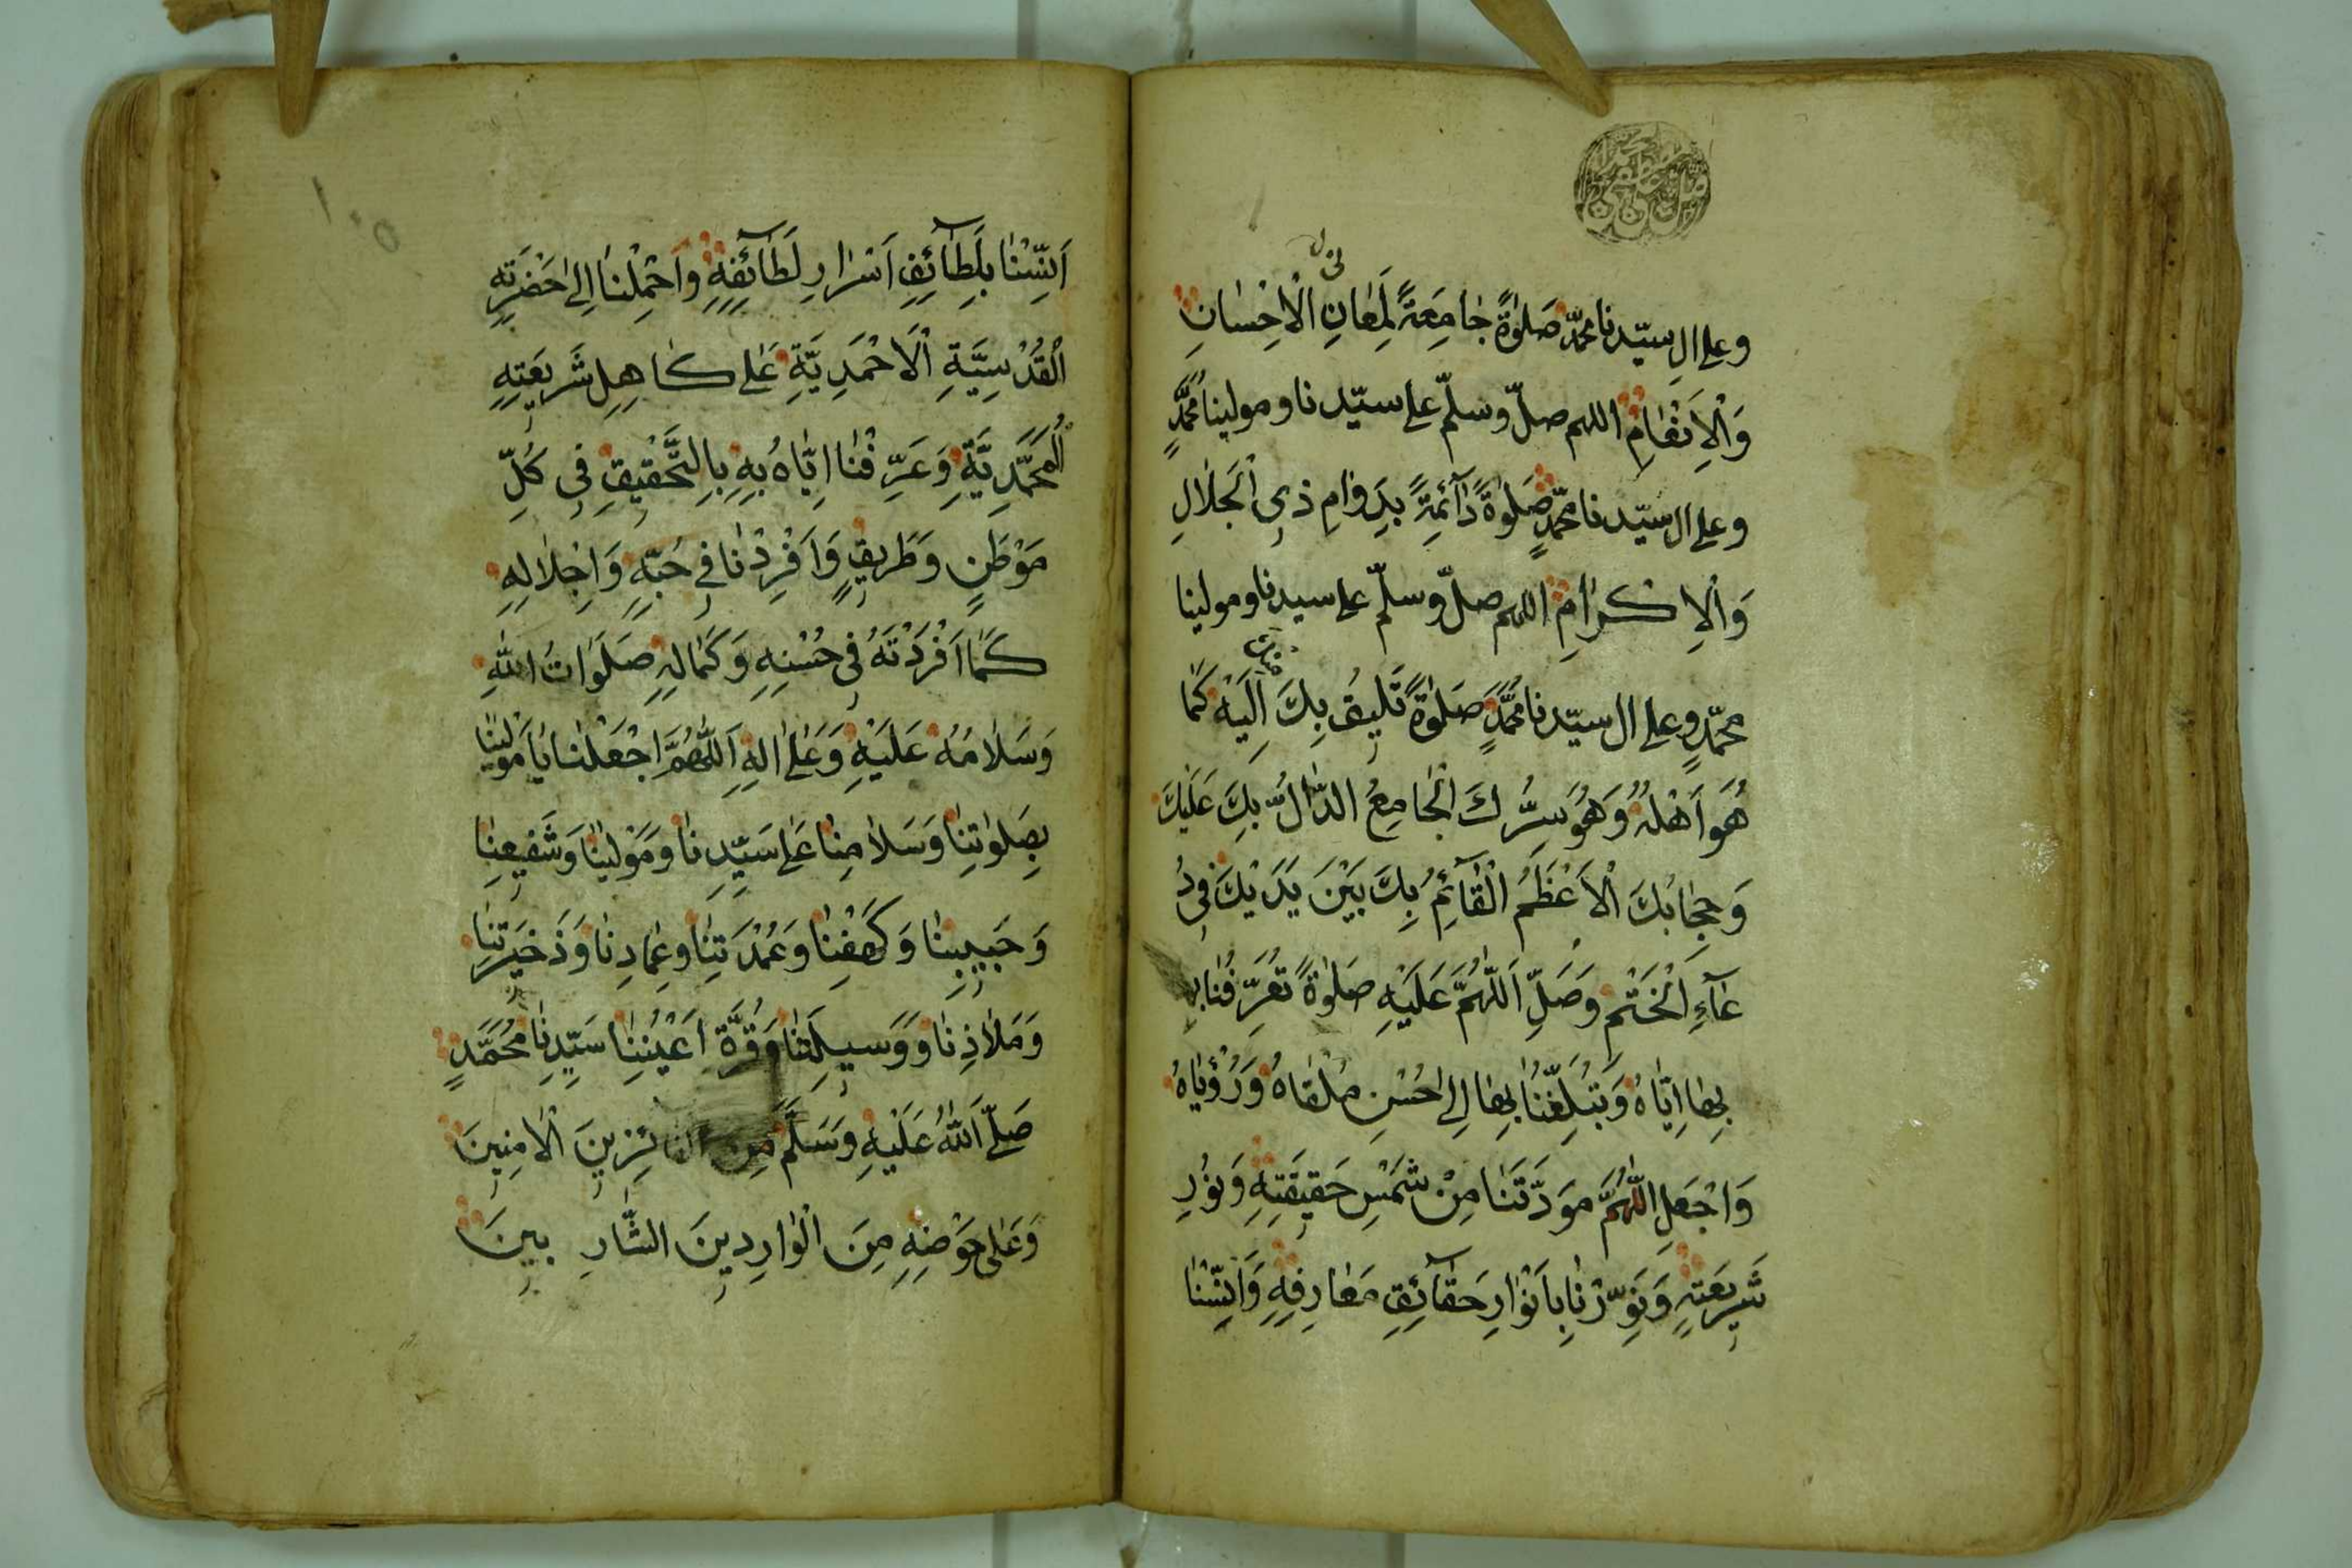 وعلى ال سيّدنا محمّد صَلوٰةً جٰامِعَةً لِمَعٰانِ الْاِحْسٰانِ
وَالْاِنْعٰامِ اللهم صلّ وسلّم على سيّدنا ومولينا محمَّدٍ
وعلى ال سيّدنا محمّدٍ صَلوٰةً دٰآئِمَةً بِدَوٰامِ ذى الْجَلٰالِ
وَالْاِكْرٰامِ اللهم صلّ وسلّم على سيدنا ومولينا
محمّدٍ وعلى ال سيّدنا محمَّدٍ صَلوٰةً تَليقُ بِكَ اِلَيْهِ كَمٰا
هُوَ اَهْلُهُ وَهُوَ سِرُّكَ الْجٰامِعُ الدّٰالُّ بِكَ عَلَيْكَ
وَحِجٰابُكَ الْاَعْظَمُ الْقٰآئِمُ بِكَ بَيْنَ يَدَيْكَ فى دُ
عٰآءِ الْخَتْمِ وَصَلِّ اَللّٰهُمَّ عَلَيْهِ صَلوٰةً تُعَرِّفُنٰا
بِهٰا اِيّٰاهُ وَتُبَلِّغُنٰا بِهٰا اِلىٰ حُسْنِ مُلْقٰاهُ وَرُؤْيٰاهُ
وَاجْعَلِ اللّٰهُمَّ مَوَدَّتَنٰا مِنْ شَمْسِ حَقيقَتِهِ وَنُورِ
شَريعَتِهِ وَنَوِّرْنٰا بِاَنْوٰارِ حَقٰآئِقِ مَعٰارِفِهِ وَاٰنِسْنٰا
اٰنِسْنٰا بِلَطٰآئِفِ اَسْرٰارِ لَطٰآئِفِهِ وَاحْمِلْنٰا اِلىٰ حَضْرَتِهِ
الْقُدْسِيَّةِ الْاَحْمَدِيَّةِ عَلىٰ كٰاهِلِ شَريعَتِهِ
الْمُحَمَّدِيَّةِ وَعَرِّفْنٰا اِيّٰاهُ بِهِ بِالتَّحْقيقِ فى كُلِّ
مَوْطَنٍ وَطَريقٍ وَاَفْرِدْنٰا فى حُبِّهِ وَاِجْلٰالِهِ
كَمٰا اَفْرَدْتَهُ فى حُسْنِهِ وَكَمٰالِهِ صَلَوَاتُ اللّٰهِ
وَسَلٰامُهُ عَلَيْهِ وَعَلىٰ اٰلِهِ اَللّٰهُمَّ اجْعَلْنٰا يٰا مَوْلٰينٰا
بِصَلوٰتِنٰا وَسَلٰامِنٰا عَلىٰ سَيِّدِنٰا وَمَوْلٰينٰا وَشَفيعِنٰا
وَحَبيبِنٰا وَكَهْفِنٰا وَعُمْدَتِنٰا وَعِمٰادِنٰا وَذَخيرَتِنٰا
وَمَلٰاذِنٰا وَوَسيلَتِنٰا وَقُرَّةِ اَعْيُنِنٰا سَيِّدِنٰا مُحَمَّدٍ
صَلَّى اللّٰهُ عَلَيْهِ وَسَلَّمَ مِنَ الفائزينَ الْاٰمِنينَ
وَعَلىٰ حَوْضِهِ مِنَ الْوٰارِدينَ الشّٰارِبينَ
١٠٥